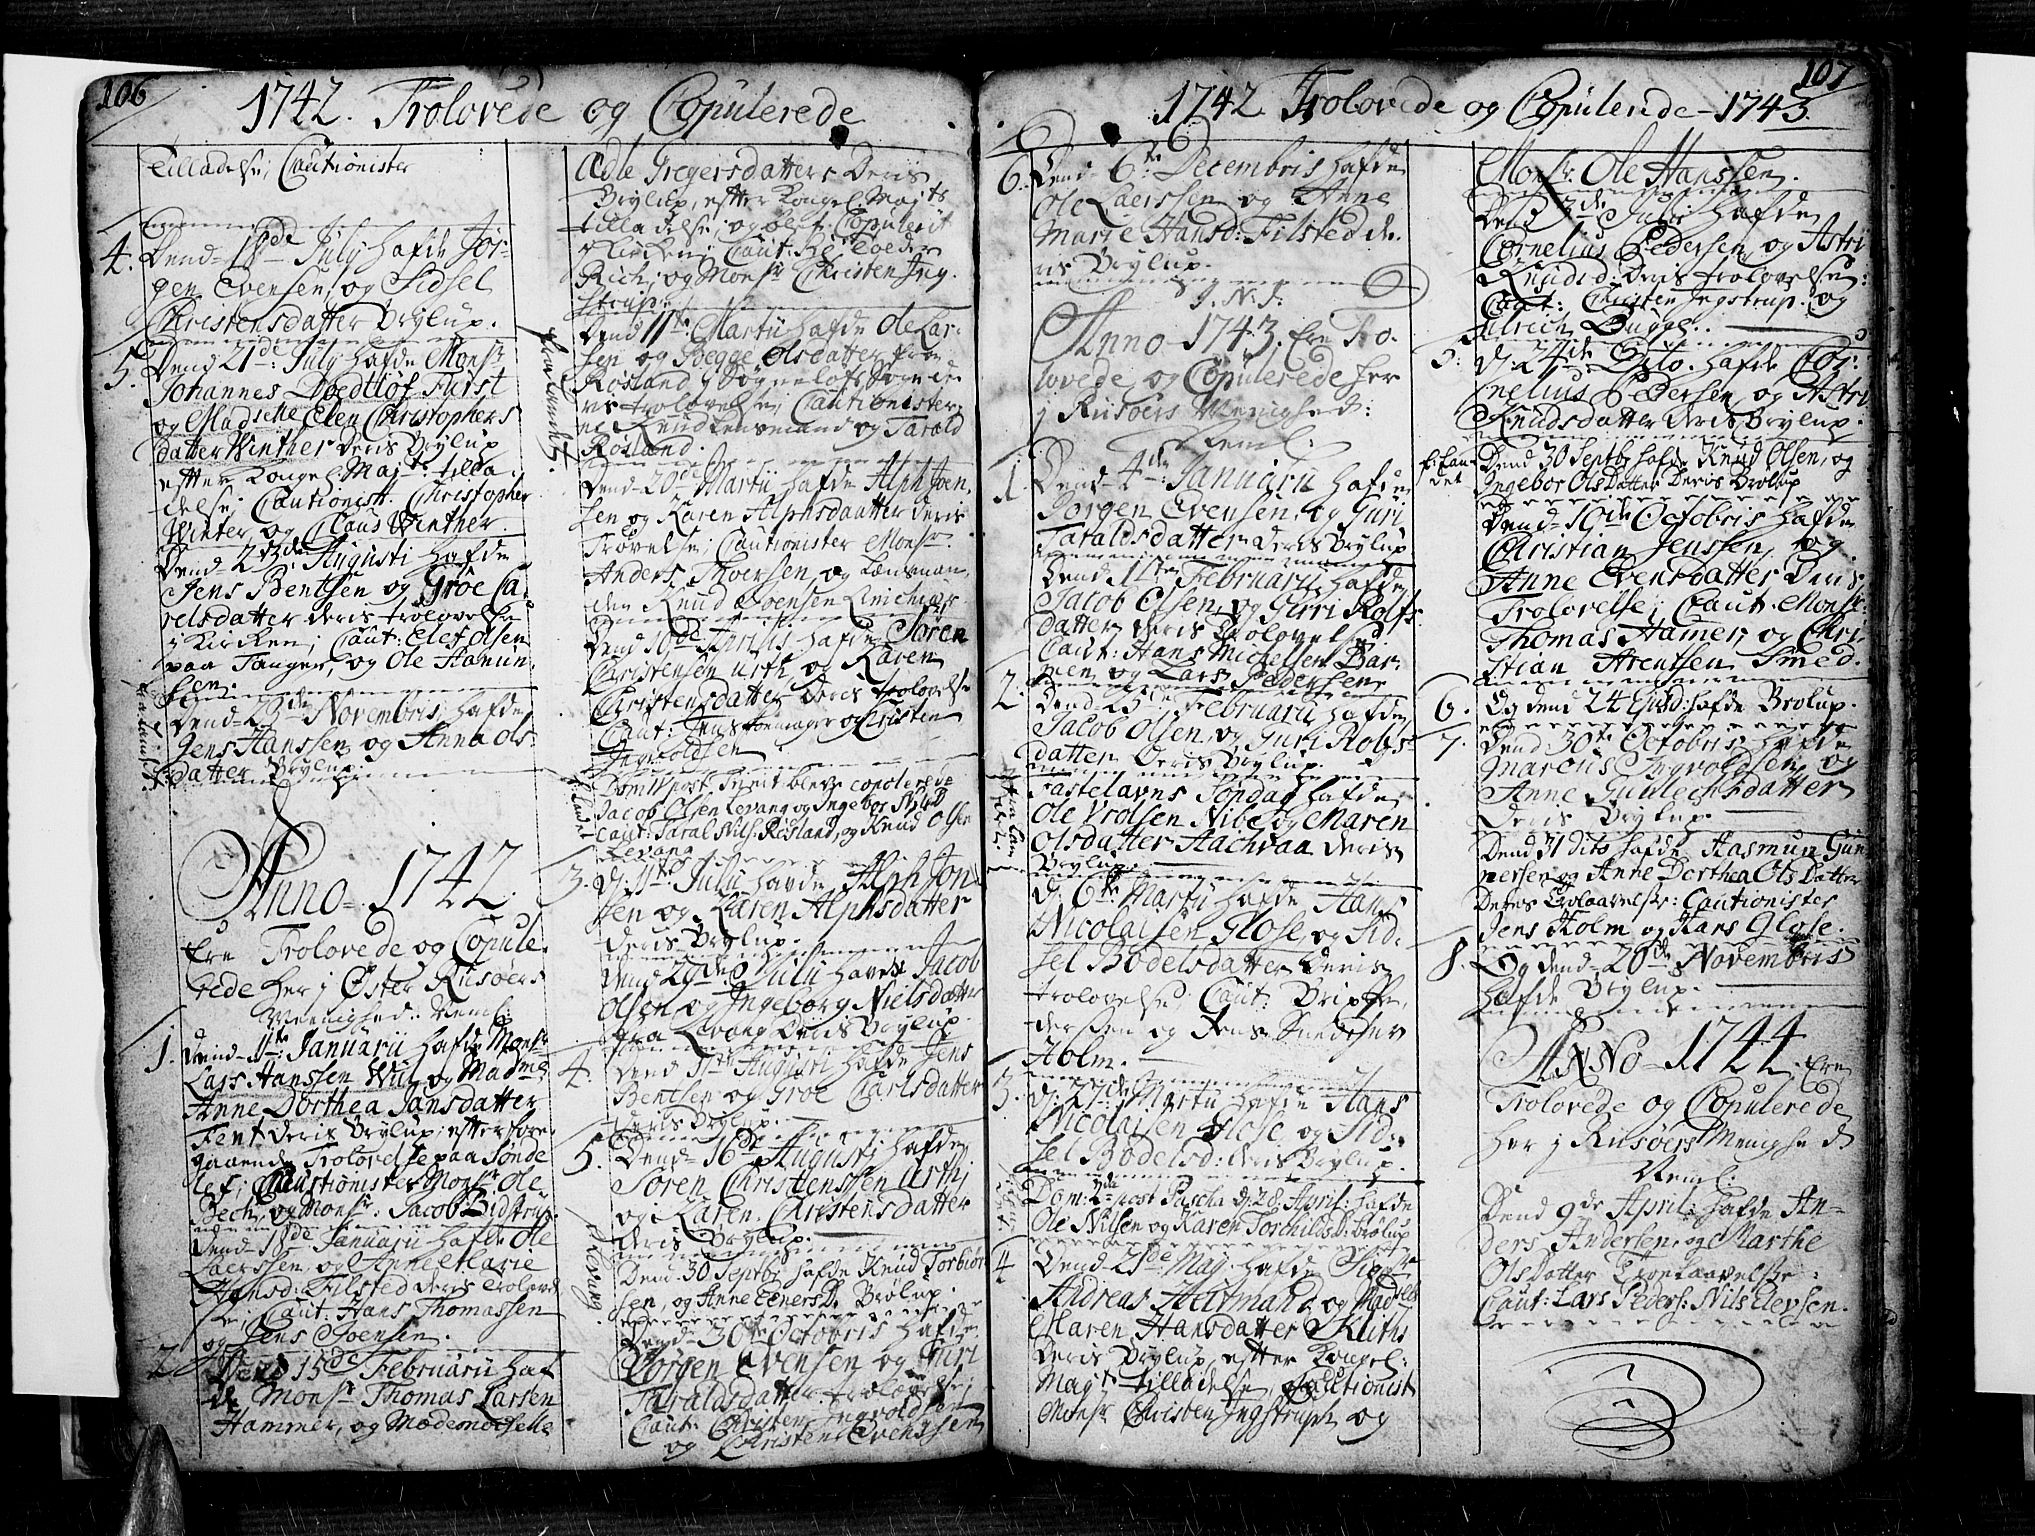 106
1742. Trolovede og Copulerede
Tilladelse; Cautionister
4. Dend 18de July hafde Jør-
gen Evensen og Sidsel
Christensdatter Brÿlup.
5. Dend 21de July hafde Monsr
Johannes Fürst
og Madselle Elen Christophers
datter Winther deris Brÿlup
effter Kongel: Majts: tilla-
delse; Cautionist. Christopher
Winter og Claus Winther.
Dend 23de Augusti hafde
Jens Bentsen og Groe Ca-
relsdatter deris trolovelse
j Kircken; Caut: Elef Olsen
paa Tanger, og Ole Hamun-
sen.
Dend 29de Novembris hafde
Jens Hanssen og Anna Ols
datter Brÿlup.
Anno 1742.
Ere Trolovede og Copule-
rede her j Øster Riisøers
Meenighed. Neml:
1. Dend 11te Januarii hafde Monsr
Lars Hanssen og Madme
Anne Dorthea Jansdatter
Fent deris Brÿlup; effter fore-
gaaende Trolovelse paa Sønde
lef; Cautionister Monsr Ole
Bech, og Monsr Jacob Bidstrup.
Dend 18de Januarii hafde Ole
Laerssen og Anne Marie
Hansd: Filsted deris trolovel
se; Caut: Hans Thomassen
og Jens Joensen.
2. Dend 15de Februarii haf
de Monsr Thomas Larsen
Hammer, og Mademoiselle
Ædle Gregersdatter Deris
Brÿlup, effter Kongel. Majts
tilladelse; og blef Copulerit
j Kircken; Caut:
Rich; og Monsr Christen Ing-
strup.
fra Landet.
Dend 11te Martii hafde Ole Lar-
sen og Segge Olsdatter fra
Røsland j Søgnelofs Sogn de
ris trolovelse; Cautionister
og Tarald
Røsland.
Dend 20de Martii hafde Alph Joen-
sen og Karen Alphsdaatter deris
Trovelse; Cautionister Monsr
Anders Thoersen, og Lænsman-
den Knud Joensen
Dend 16de Aprilis hafde Søren
Christensen Urth, og Karen
Christensdatter Deris trolovelse
Caut: Jens og Christen
Ingvoldsen
Landet
Dom: post. Trinit bleve copolerede
Jacob Olsen Levang og Ingebor NilsD
Caut: Taral Nils: Røsland, og Knud Olsen
Levang
3. D. 11te Julii havde Alph Jon
sen og Karen Alphsdatter
deris Brÿlup.
Dend 29de Julii havde Jacob
Olsen og Ingeborg Nielsdatter
fra Levang deris Brÿlup.
4. Dend Augusti hafde Jens
Bentsen og Groe Carlsdatter
deris Brÿlup.
5. Dend 16de Augusti hafde
Søren Christenssen Urth
og Karen Christensdatter
deris Brÿlup.
Levang
Dend 30 Septbr hafde Knud Torbiør
sen, og Anne EenersD. Brølup.
Dend 30te Octobris hafde
Jørgen Evensen og Guri
Taraldsdatter trolovelse;
Caut: Christen Ingvoldsen
og Christen Evenssen
107
1742 Trolovede og Copulerede 1743.
6. Dend 6te Decembris hafde
Ole Laerssen og Anne
Marie Hansd: Filsted de-
ris Brÿlup.
J. N. J.
Anno 1743. Ere Tro-
lovede og Copulerede her
j Riisøers Menighed:
Neml:
1. Dend 4de Januarii hafde
Jørgen Evensen og Guri
Taraldsdatter Deris Brÿlup
Dend 11te Februarii hafde
Jacob Olsen og Gurri Rolfs-
datter deris Trolovelse;
Caut: Hans Michelsen Bar-
men og Lars Pedersen
2. Dend 25de Februarii hafde
Jacob Olsen og Guri Rolfs-
datter Deris Brÿlup.
Fastelavns Søndag hafde
Ole Vrolsen Nibe og Maren
Olsdatter Aachvaa deris
Brÿlup.
d. 6te Martii hafde Hans
Nicolaisen Glose, og Sid-
sel Bodelsdatter Deris
trolovelse; Caut:
derssen og Jens
Holm.
3. d. 27de Martii hafde Hans
Nicolaisen Glose, og Sid-
sel Bodelsd: deris Brÿlup.
Dom: 2da post Pascha d. 28 April: hafde
Ole Nilsen og Karen TorchildsD: Brølup
4. Dend 21de Maj hafde Sigr
Andreas Heitmand, og Madselle
Maren Hansdatter
Deris Brÿlup, efter Kongel:
Majts tilladelse, Cautionist
Monsr Christen Ingstrup, og
Monsr. Ole Hanssen.
Dend 3de Julii hafde
Cornelius Pedersen og Astri
Knudsd: Deris trolovelse:
Caut: Christen Ingstrup: og
Ulrich Bugge.
5. d. 24de Dito hafde Cor-
nelius Pedersen, og Astri
Knudsdatter deris Brÿlup.
fr: Lan-
det
Dend 30 Septbr hafde Knud Olsen, og
Ingebor OlsDatter Deris Brølup
Dend 10de Octobris hafde
Christian Jenssen, og
Anne Evensdatter Deris
Trolovelse; Caut. Monsr.
Thomas Hamer, og Chri-
stian Arentsen Smed.
6. Og dend 24 hafde Brølup.
7. Dend 30te Octobris hafde
Marcus Ingvoldsen og
Anne Gunlechsdatter
Deris Brÿlup.
Dend 31 dito hafde Aasmun Gun
nersen og Anne Dorthea OlsDatter
Deres Trolaavelse: Cautionister
Jens Holm og Hans Glose.
8. Og dend 20de Novembris
hafde Brÿlup.
ANNO 1744. Ere
Trolovede og Copulerede
her j Riisøers Menighed
Neml:
Dend 9de April: hafde An-
ders Andersen, og Marthe
OlsDatter Troelaavelse:
Caut: Lars Peders: Nils Elevsen.